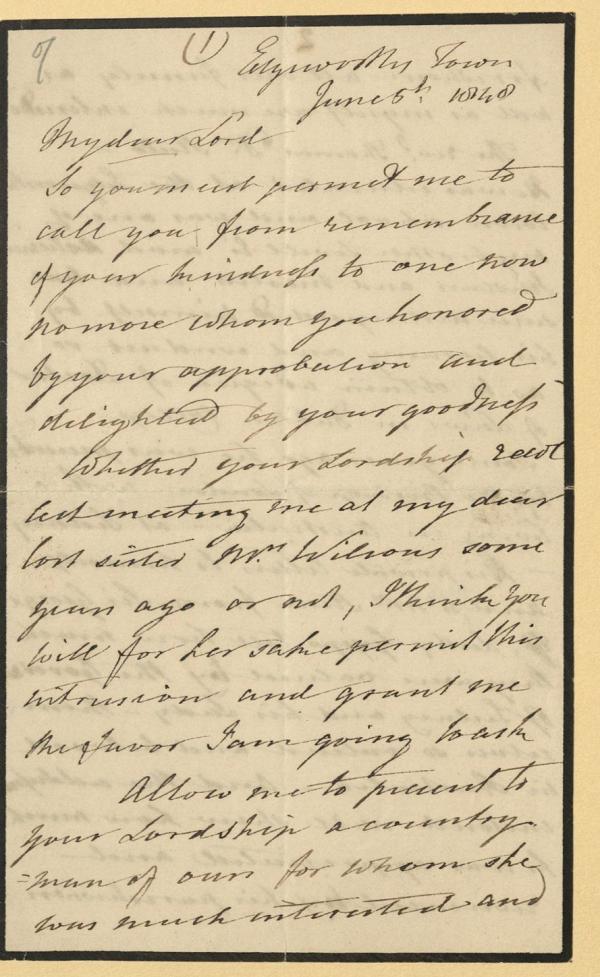 (1)
Edgeworths Town
June 6th 1848
My dear Lord
So you must permit me to
call you from remembrance
of your kindness to one now
no more whom you honored
by your approbation and
delighted by your goodness
Whether your Lordship recol
lect meeting me at my dear
lost sister Mrs Wilsons some
years ago or not, I think you
will for her sake permit this
intrusion and grant me
the favor I am going to ask
Allow me to present to
your Lordship a country-
=man of ours for whom she
was much interested and